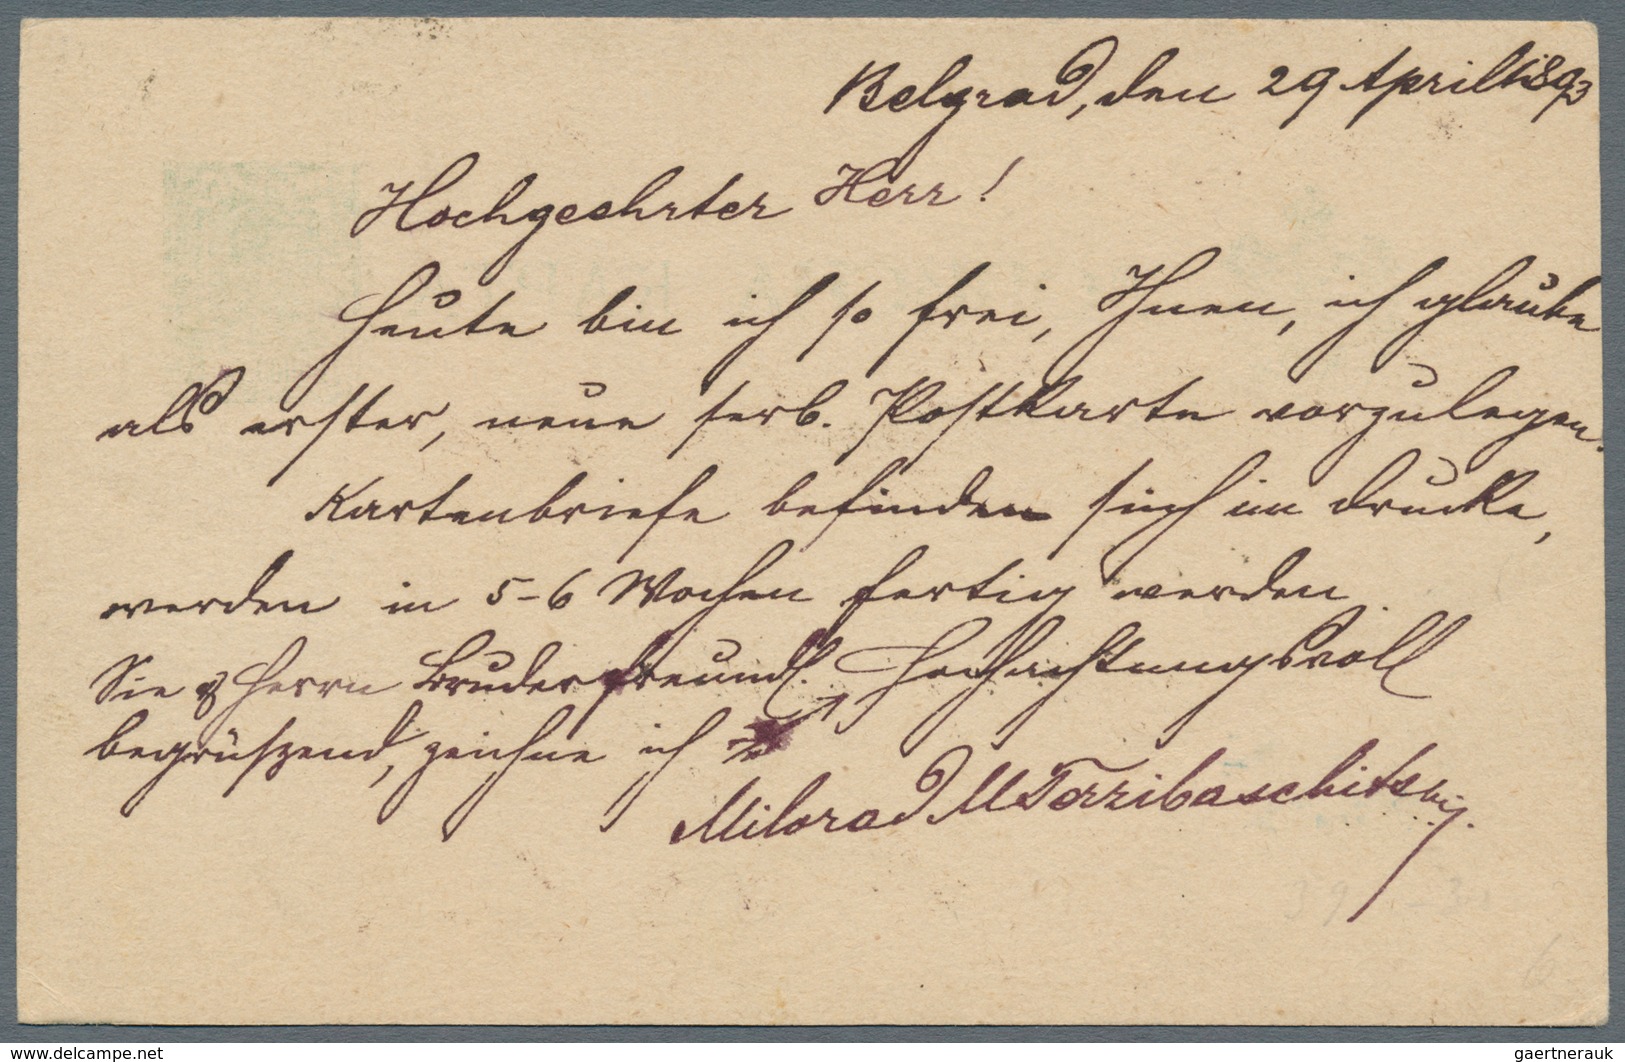 Belgrad, den 29 April 1893
Hochgeehrter Herr!
Heute bin ich so frei, Ihnen, ich glaube
als erster, neue serb. Postkarte vorzulegen.
Kartenbriefe befinden sich im Drucke,
werden in 5-6 Wochen fertig werden.
Sie & Herrn Bruder freundl. Hochachtungsvoll
begrüßend, zeichne ich
Milorad M Terzibaschitsch
www.delcampe.net
gaertnerauk